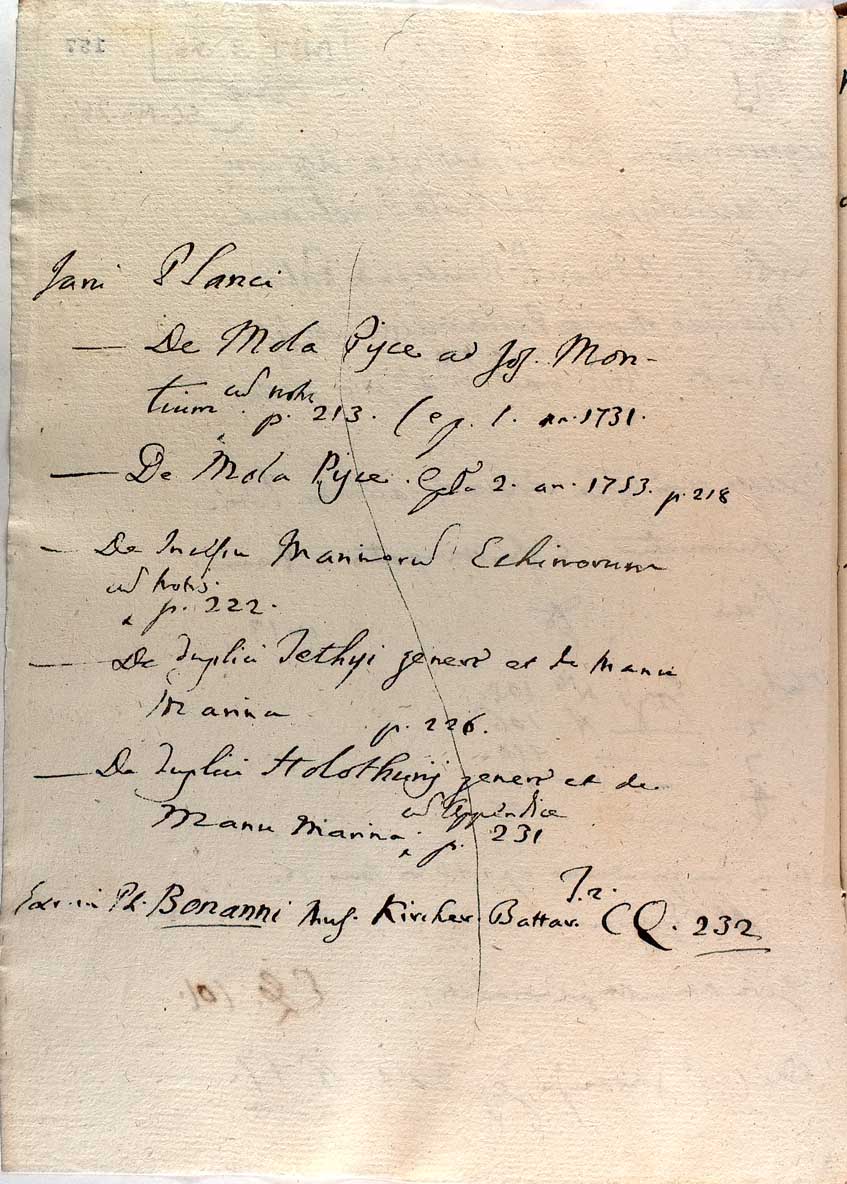 Jani Planci
— De Mola Pisce ad Jos. Mon-
tium cum notis p. 213. (ep. 1. an. 1731.
— De Mola Pisce. Epla 2. an. 1753. p. 218
— De Incessu Marinorum Echinorum
cum notis. p. 222.
— De duplici Tethyi genere et de Manu
Marina p. 226.
— De duplici Holothurij genere et de
Manu Marina cum Appendice p. 231
in Ph. Bonanni Mus. Kircher. Battar. T. 2. CQ. 232